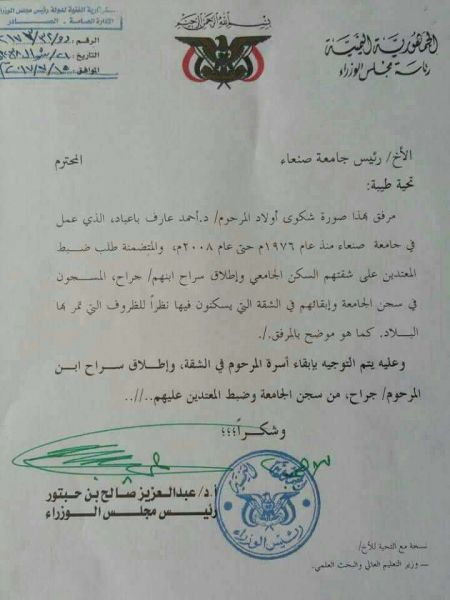 بسم الله الرحمن الرحيم
الجمهورية اليمنية
رئاسة مجلس الوزراء
السكرتارية الفنية لدولة رئيس مجلس الوزراء
الإدارة العامة - الصادر
الرقم:
التاريخ:
الموافق:
الأخ/ رئيس جامعة صنعاء المحترم
تحية طيبة:
مرفق بهذا صورة شكوى أولاد المرحوم/ د.أحمد عارف باعباد، الذي عمل
في جامعة صنعاء منذ عام ١٩٧٦م حتى عام ٢٠٠٨م، والمتضمنة طلب ضبط
المعتدين على شقتهم السكن الجامعي وإطلاق سراح ابنهم/ جراح، المسجون
في سجن الجامعة وإبقائهم في الشقة التي يسكنون فيها نظراً للظروف التي تمر بها
البلاد. كما هو موضح بالمرفق./.
وعليه يتم التوجيه بإبقاء أسرة المرحوم في الشقة، وإطلاق سراح ابن
المرحوم/ جراح، من سجن الجامعة وضبط المعتدين عليهم..//..
وشكراً؛؛؛
أ.د/ عبدالعزيز صالح بن حبتور
رئيس مجلس الوزراء
رئيس الوزراء
نسخة مع التحية للأخ/
ـ وزير التعليم العالي والبحث العلمي.